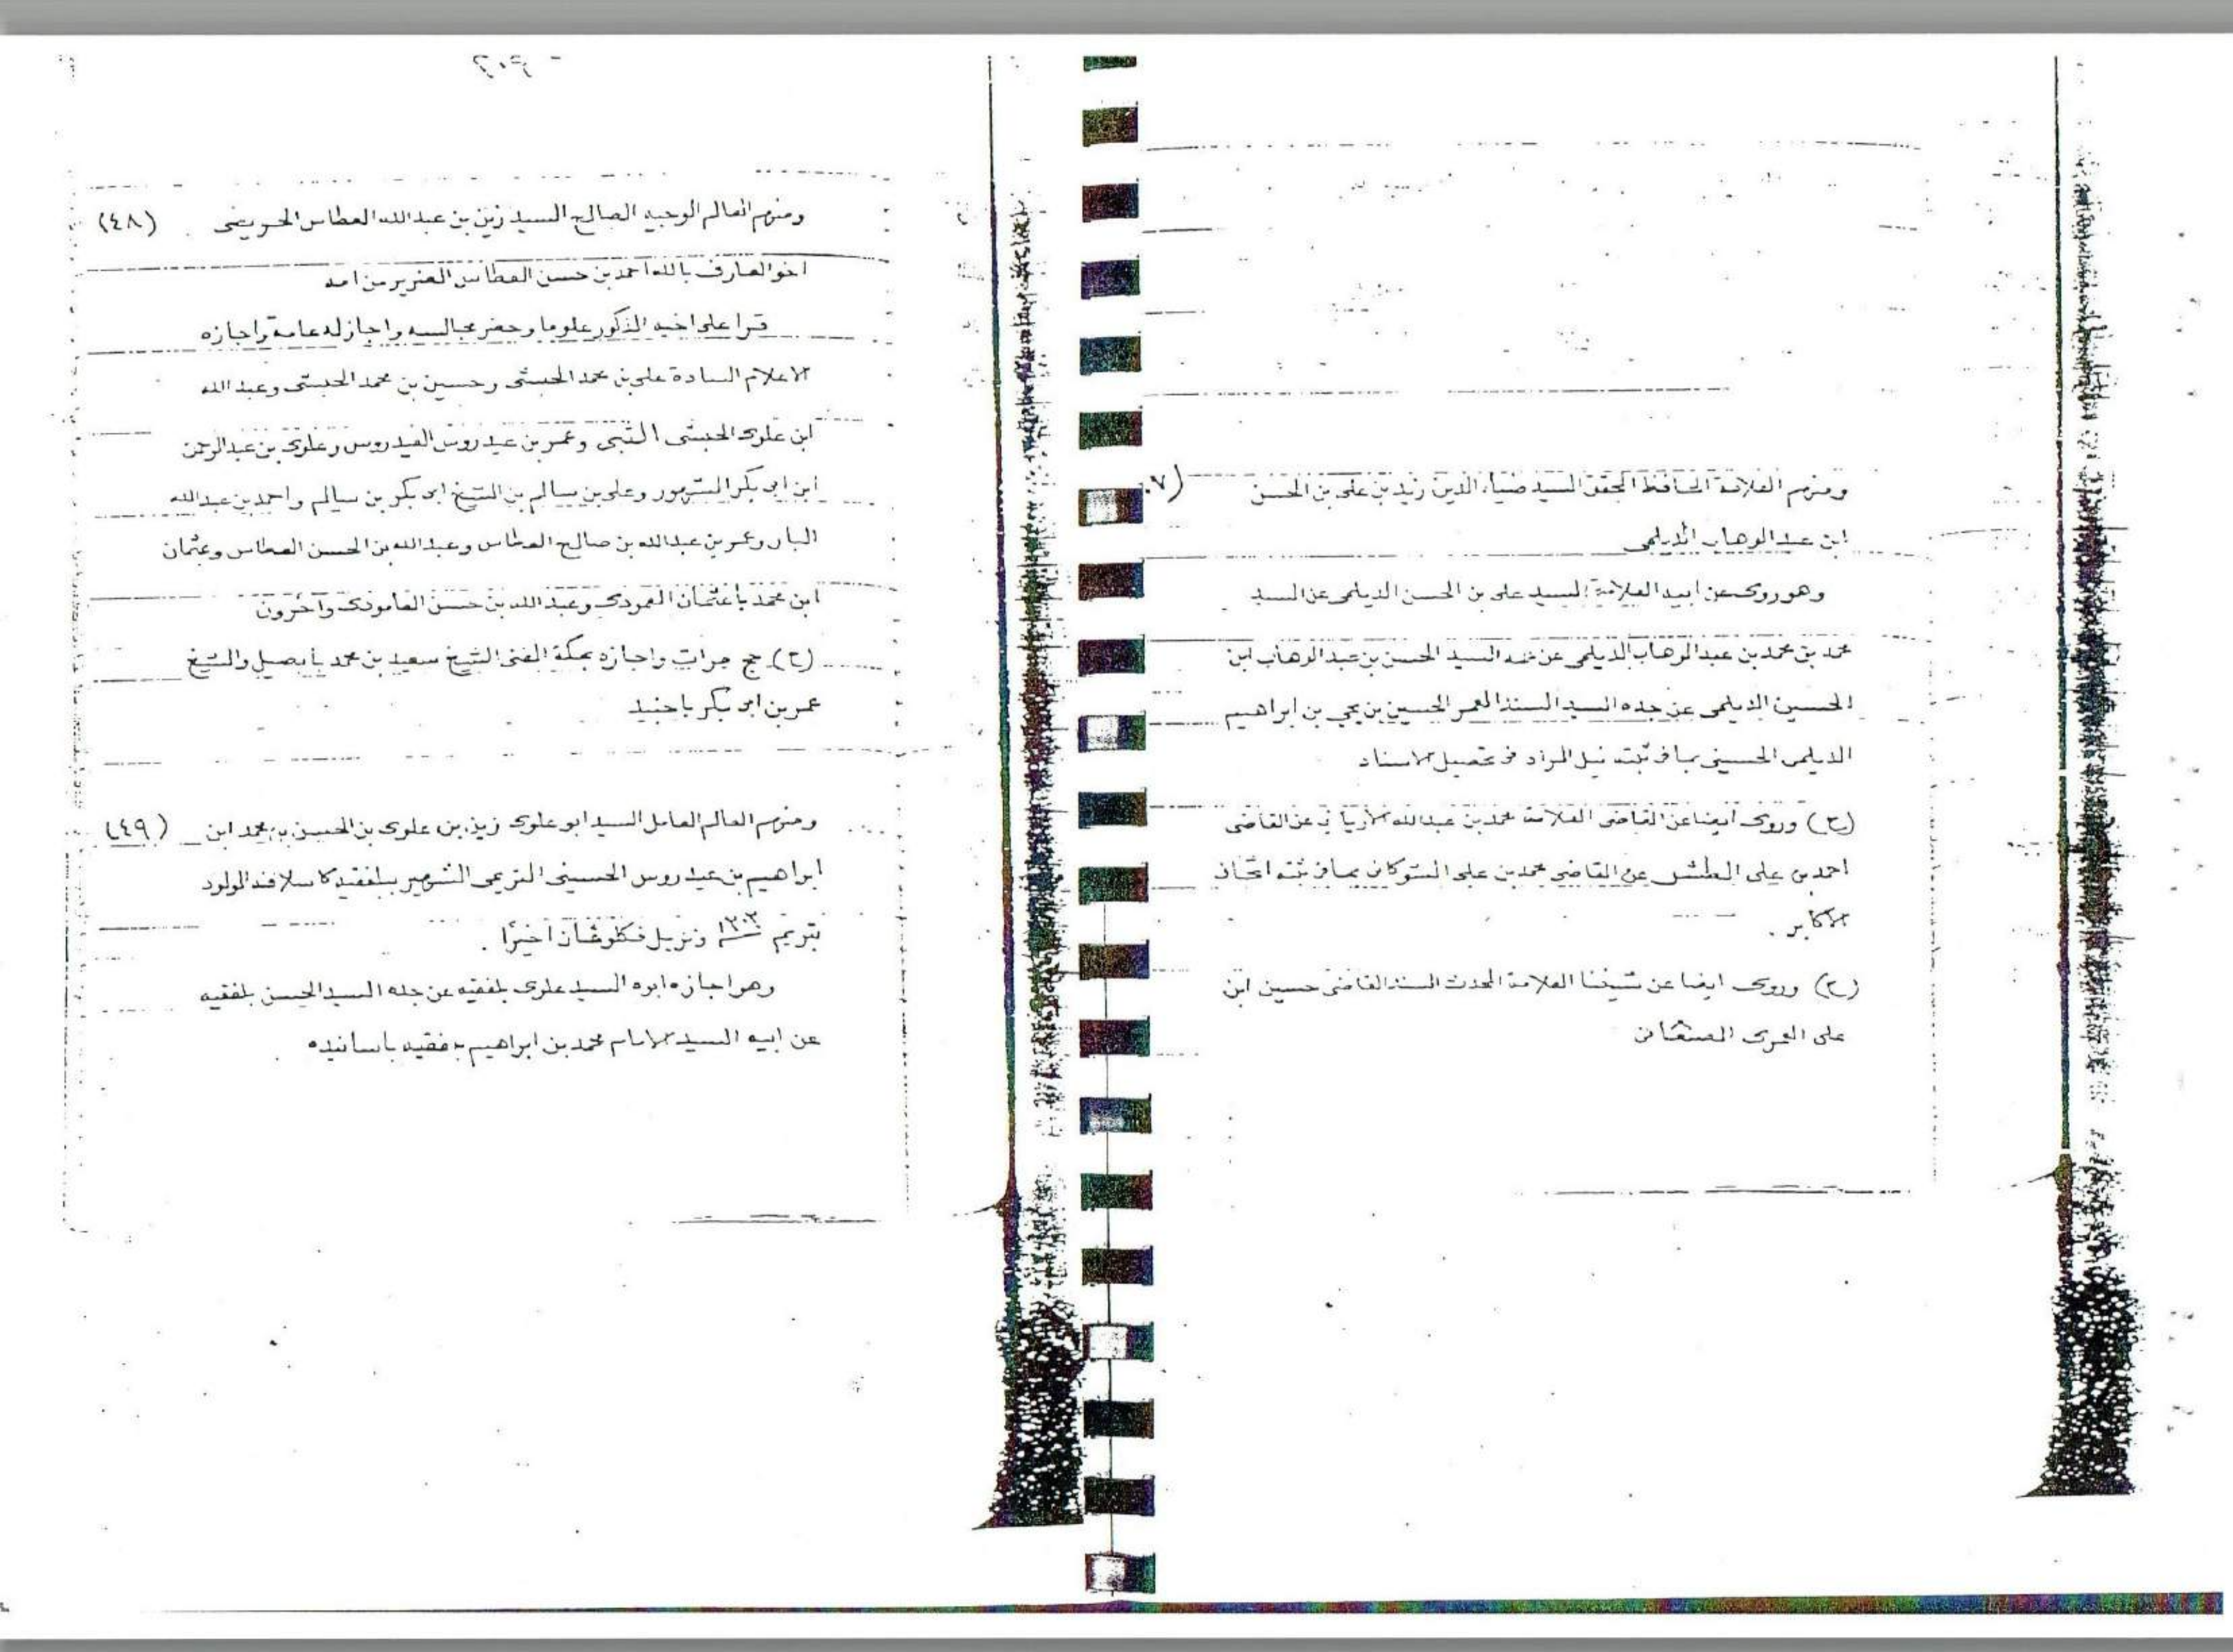 ومنهم العلامة الحافظ المحقق السيد ضياء الدين زيد بن علي بن الحسن
ابن عبد الوهاب الديلمي
وهو روى عن ابيه العلامة السيد علي بن الحسن الديلمي عن السيد
محمد بن محمد بن عبد الوهاب الديلمي عن السيد الحسن بن عبد الوهاب ابن
الحسين الديلمي عن جده السيد المسند المعمر الحسين بن يحي بن ابراهيم
الديلمي الحسيني بما في ثبته نيل المراد في تحصيل الاسناد
(ح) وروى ايضا عن القاضي العلامة محمد بن عبد الله عن القاضي
احمد بن علي الطشي عن القاضي محمد بن علي الشوكاني بما في ثبته اتحاف
الاكابر .
(ح) وروى ايضا عن شيخنا العلامة المحدث المسند القاضي حسين ابن
علي العمري الصنعاني
(٤٨) ومنهم العالم الوجيه الصالح السيد زين بن عبد الله العطاس الحريضي
اخو العارف بالله احمد بن حسن العطاس الضرير من امه
قرا على اخيه المذكور علوما وحضر مجالسه واجاز له عامة واجازه
الاعلام السادة علي بن محمد الحبشي وحسين بن محمد الحبشي وعبد الله
ابن علوي الحبشي الثبي وعمر بن عيدروس العيدروس وعلوي بن عبد الرحمن
ابن ابي بكر المشهور وعلي بن سالم بن الشيخ ابي بكر بن سالم واحمد بن عبد الله
البار وعمر بن عبد الله بن صالح العطاس وعبد الله بن الحسن العطاس وعثمان
ابن محمد باعثمان العمودي وعبد الله بن حسن العامودي وآخرون
(ح) حج مرات واجازه بمكة المفتي الشيخ سعيد بن محمد بابصيل والشيخ
عمر بن ابي بكر باجنيد
(٤٩) ومنهم العالم العامل السيد ابو علوي زين بن علوي بن الحسن بن محمد ابن
ابراهيم بن عيدروس الحسيني التريمي الشهير ببلفقيه كاسلافه المولود
بتريم ١٣٠٢ ونزيل فكلوغان اخيرًا .
وهو اجازه ابوه السيد علوي بلفقيه عن جده السيد الحسن بلفقيه
عن ابيه السيد الامام محمد بن ابراهيم بلفقيه باسانيده